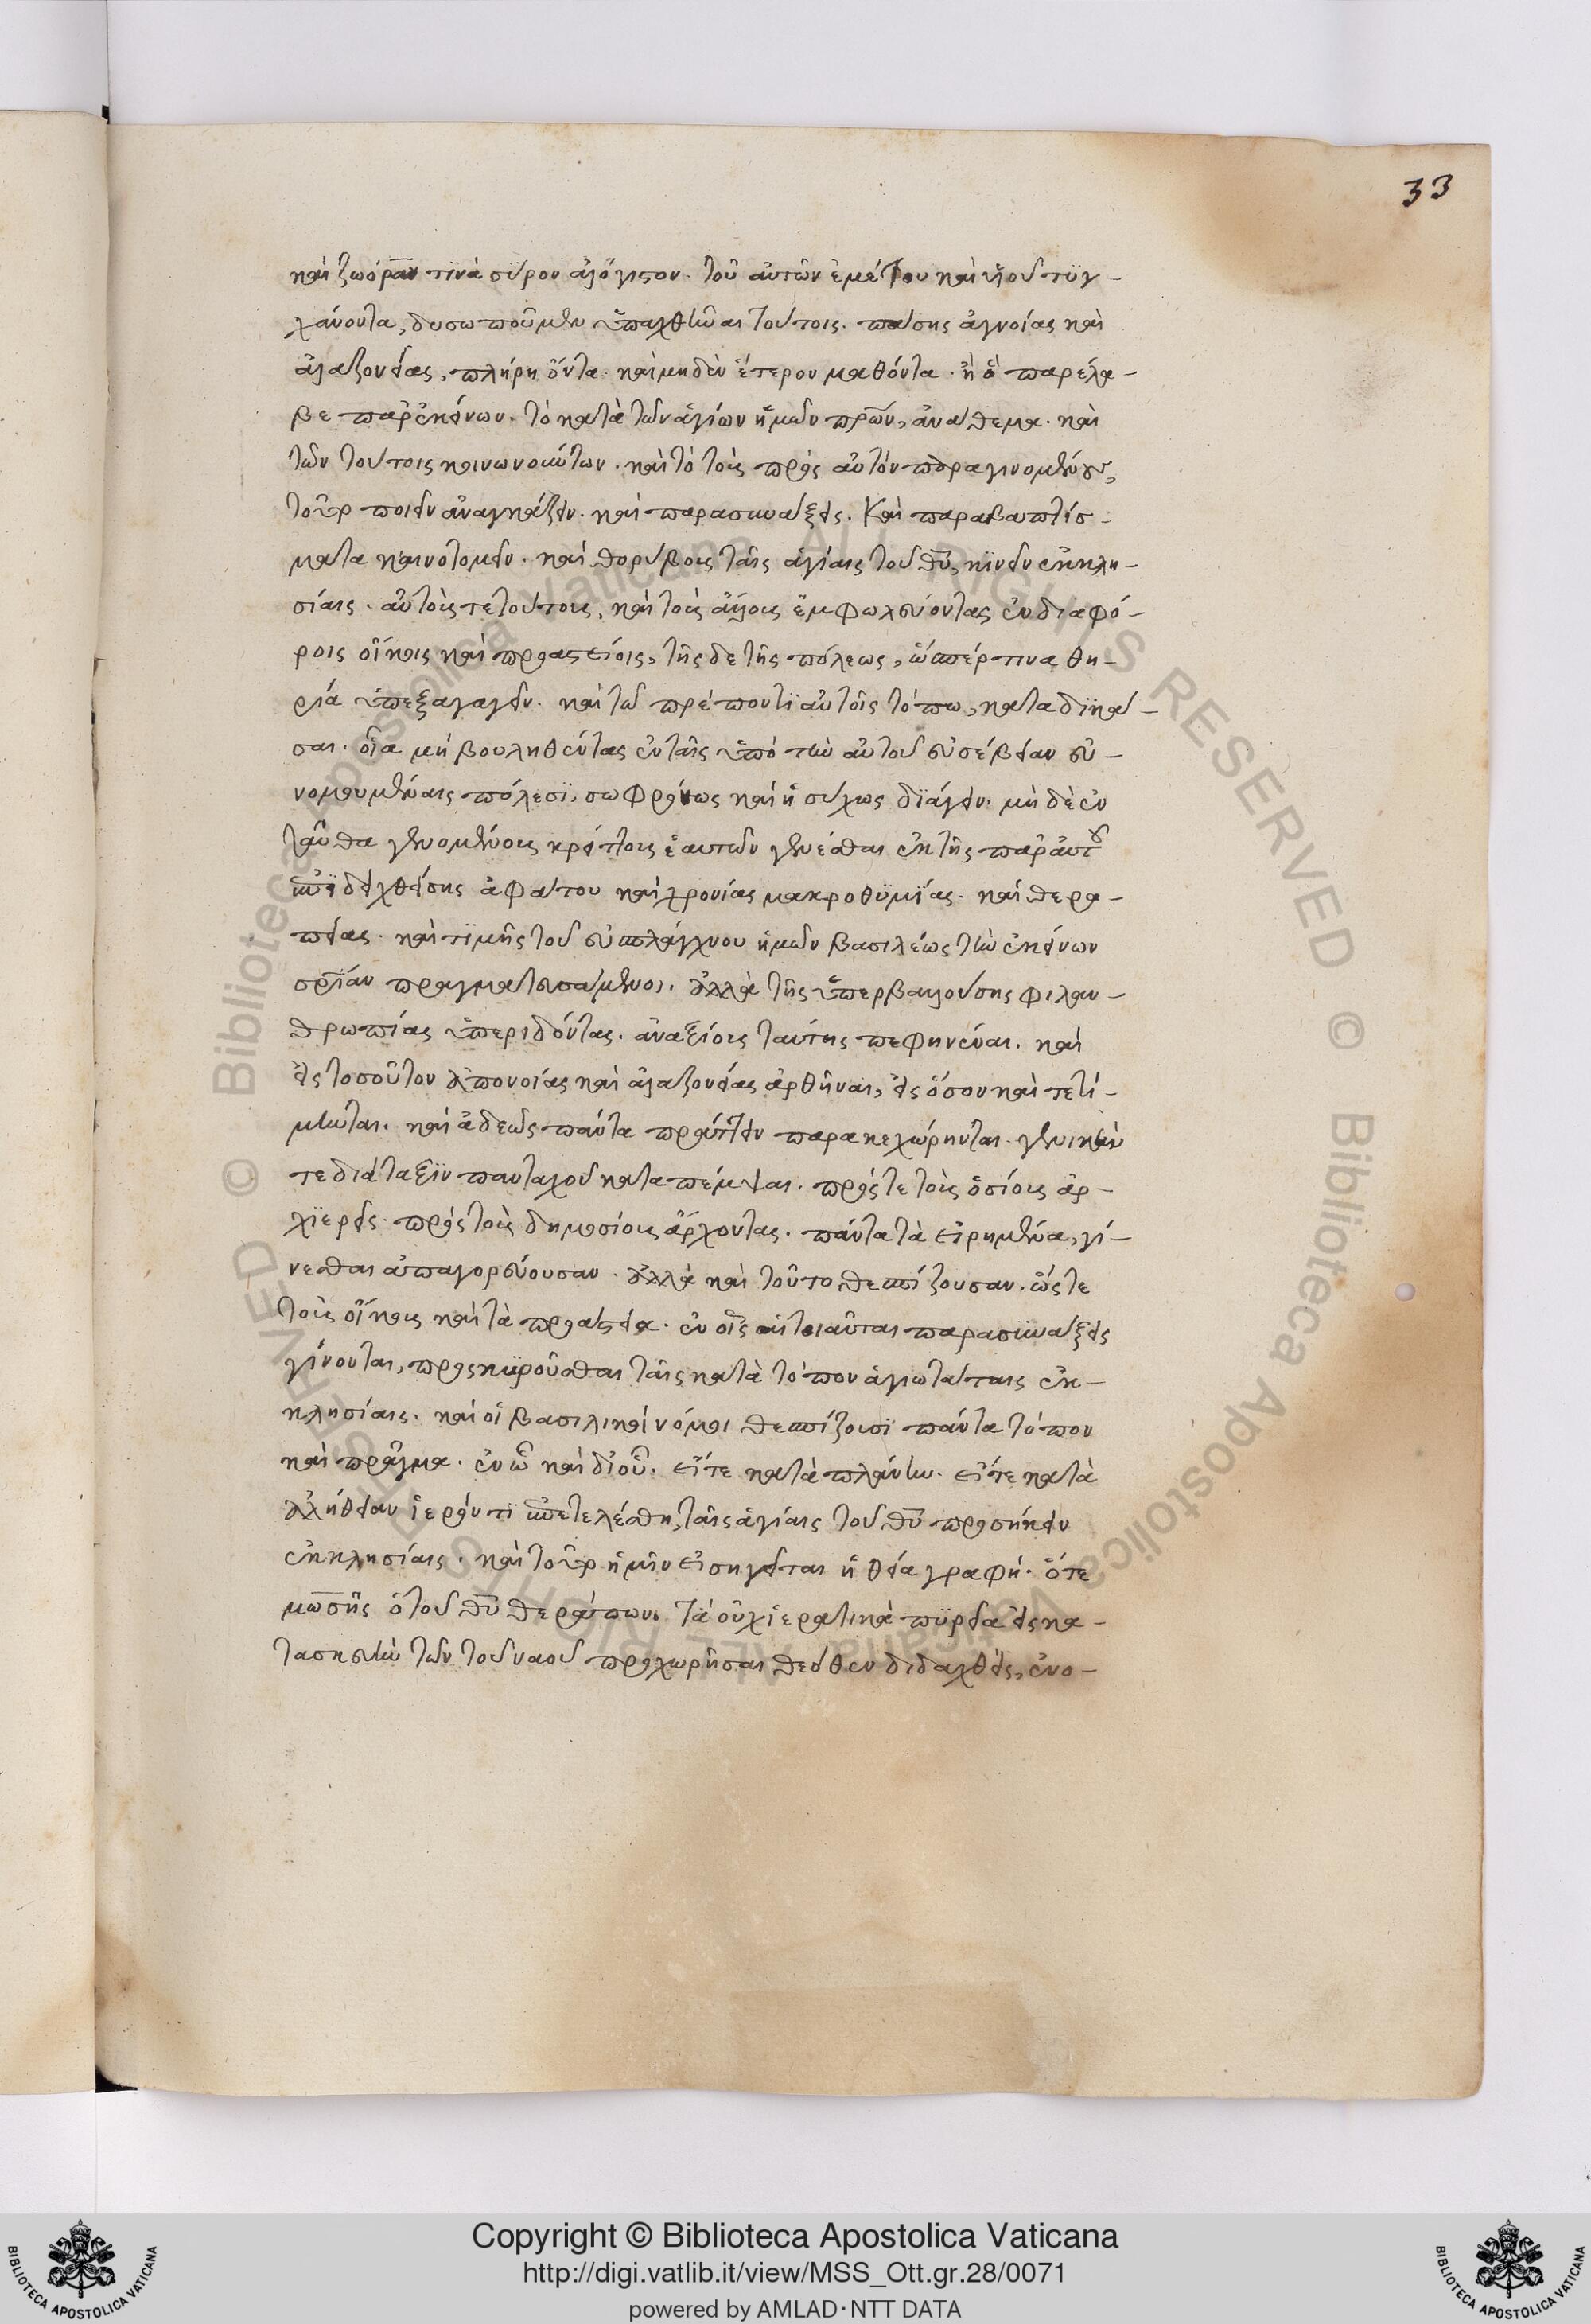 33
καὶ ζωόραν τινὰ σύρον ἀλόγιστον. τοῦ αὐτῶν ἐμέτου καὶ υἱοῦ τυγ-
χάνοντα, δυσωποῦμεν ὑπαχθῆναι τούτοις. πάσης ἀγνοίας καὶ
ἀλαζονείας, πλήρη ὄντα. καὶ μηδὲν ἕτερον μαθόντα. ἢ ὃ παρέλα-
βε παρ' ἐκείνων. τὸ κατὰ τῶν ἁγίων ἡμῶν πρων, ἀνάθεμα. καὶ
τῶν τούτοις κοινωνούντων. καὶ τὸ τοὺς πρὸς αὐτὸν παραγινομένους,
τοῦτο ποιεῖν ἀναγκάζειν. καὶ παρασυνάξεις. Καὶ παραβαπτίσ-
ματα καινοτομεῖν. καὶ θορύβοις ταῖς ἁγίαις τοῦ θυ, κινεῖν ἐκκλη-
σίαις. αὐτούς τε τούτους, καὶ τοὺς ἄλλους ἐμφωλεύοντας ἐν διαφό-
ροις οἴκοις καὶ προαστείοις, τῆς δε τῆς πόλεως, ὥσπέρ τινα θη-
ρία ὑπεξαγαγεῖν. καὶ τῶ πρέποντι αὐτοῖς τόπω, καταδικά-
σαι. οἷα μὴ βουληθέντας ἐν ταῖς ὑπὸ τὴν αὐτοῦ εὐσέβειαν εὐ-
νομουμέναις πόλεσι, σωφρόνως καὶ ἡσύχως διάγειν. μὴ δὲ ἐν
ταῦθα γενομένους κρείττους ἑαυτῶν γενέσθαι ἐκ τῆς παρ' αὐτοῦ
ἐπιδειχθείσης ἀφάτου καὶ χρονίας μακροθυμίας. καὶ θερα-
πείας. καὶ τιμῆς τοῦ εὐσπλάγχνου ἡμῶν βασιλέως τὴν ἐκείνων
σρίαν πραγματευσαμένου. ἀλλὰ τῆς ὑπερβαλλούσης φιλαν-
θρωπίας ὑπεριδόντας. ἀναξίους ταύτης πεφηνέναι. καὶ
εἰς τοσοῦτον ἀπονοίας καὶ ἀλαζονείας ἀρθῆναι, εἰς ὅσον καὶ τετί-
μηνται. καὶ ἀδεῶς πάντα πράττειν παρακεχώρηνται. γενικὴν
τε διάταξιν πανταχοῦ καταπέμψαι. πρός τε τοὺς ὁσίους ἀρ-
χιερεῖς. πρὸς τοὺς δημοσίους ἄρχοντας. πάντα τὰ εἰρημένα, γί-
νεσθαι ἀπαγορεύουσαν. ἀλλὰ καὶ τοῦτο θεσπίζουσαν. ὥστε
τοὺς οἴκους καὶ τὰ προάστεια. ἐν οἷς αἱ τοιαῦται παρασυνάξεις
γίνονται, προσκυροῦσθαι ταῖς κατὰ τόπον ἁγιωτάταις ἐκ-
κλησίαις. καὶ οἱ βασιλικοὶ νόμοι θεσπίζουσι πάντα τόπον
καὶ πρᾶγμα. ἐν ὧ καὶ δι' οὗ. εἴτε κατὰ πλάνην. εἴτε κατὰ
ἀλήθειαν ἱερόν τι ἐπετελέσθη, ταῖς ἁγίαις τοῦ θυ προσήκειν
ἐκκλησίαις. καὶ τοῦτο ἡμῖν εἰσηγεῖται ἡ θεία γραφή. ὅτε
μωσῆς ὁ τοῦ θυ θεράπων. τὰ οὐχ ἱερατικὰ πυρεῖα εἰς κα-
τασκευὴν τῶν τοῦ ναοῦ προχωρῆσαι θεόθεν διδαχθεὶς, ἐνο-
Copyright © Biblioteca Apostolica Vaticana
http://digi.vatlib.it/view/MSS_Ott.gr.28/0071
powered by AMLAD·NTT DATA